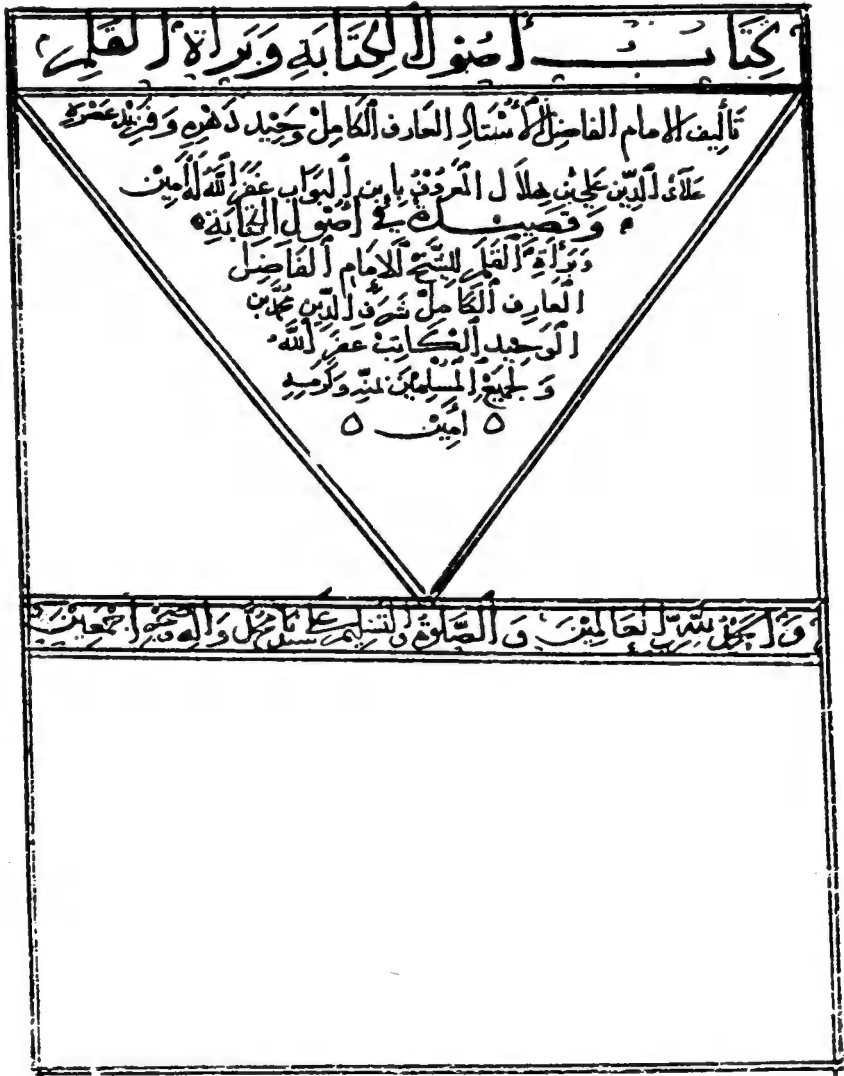 كتاب أصول الكتابة وبراة القلم
تأليف الامام الفاضل الأستاد العارف الكامل وحيد دهره وفريد عصره
علاى الدين علي بن هلال المعروف بابن البواب غفر الله له أمين
وقصيدة في أصول الكتابة
وبراة القلم للشيخ الامام الفاضل
العارف الكامل شرف الدين محمد بن
الوحيد الكاتب غفر الله
ولجميع المسلمين بمنه وكرمه
أمين
والحمد لله رب العالمين والصلوة والتسليم على سيدنا محمد واله وصحبه اجمعين